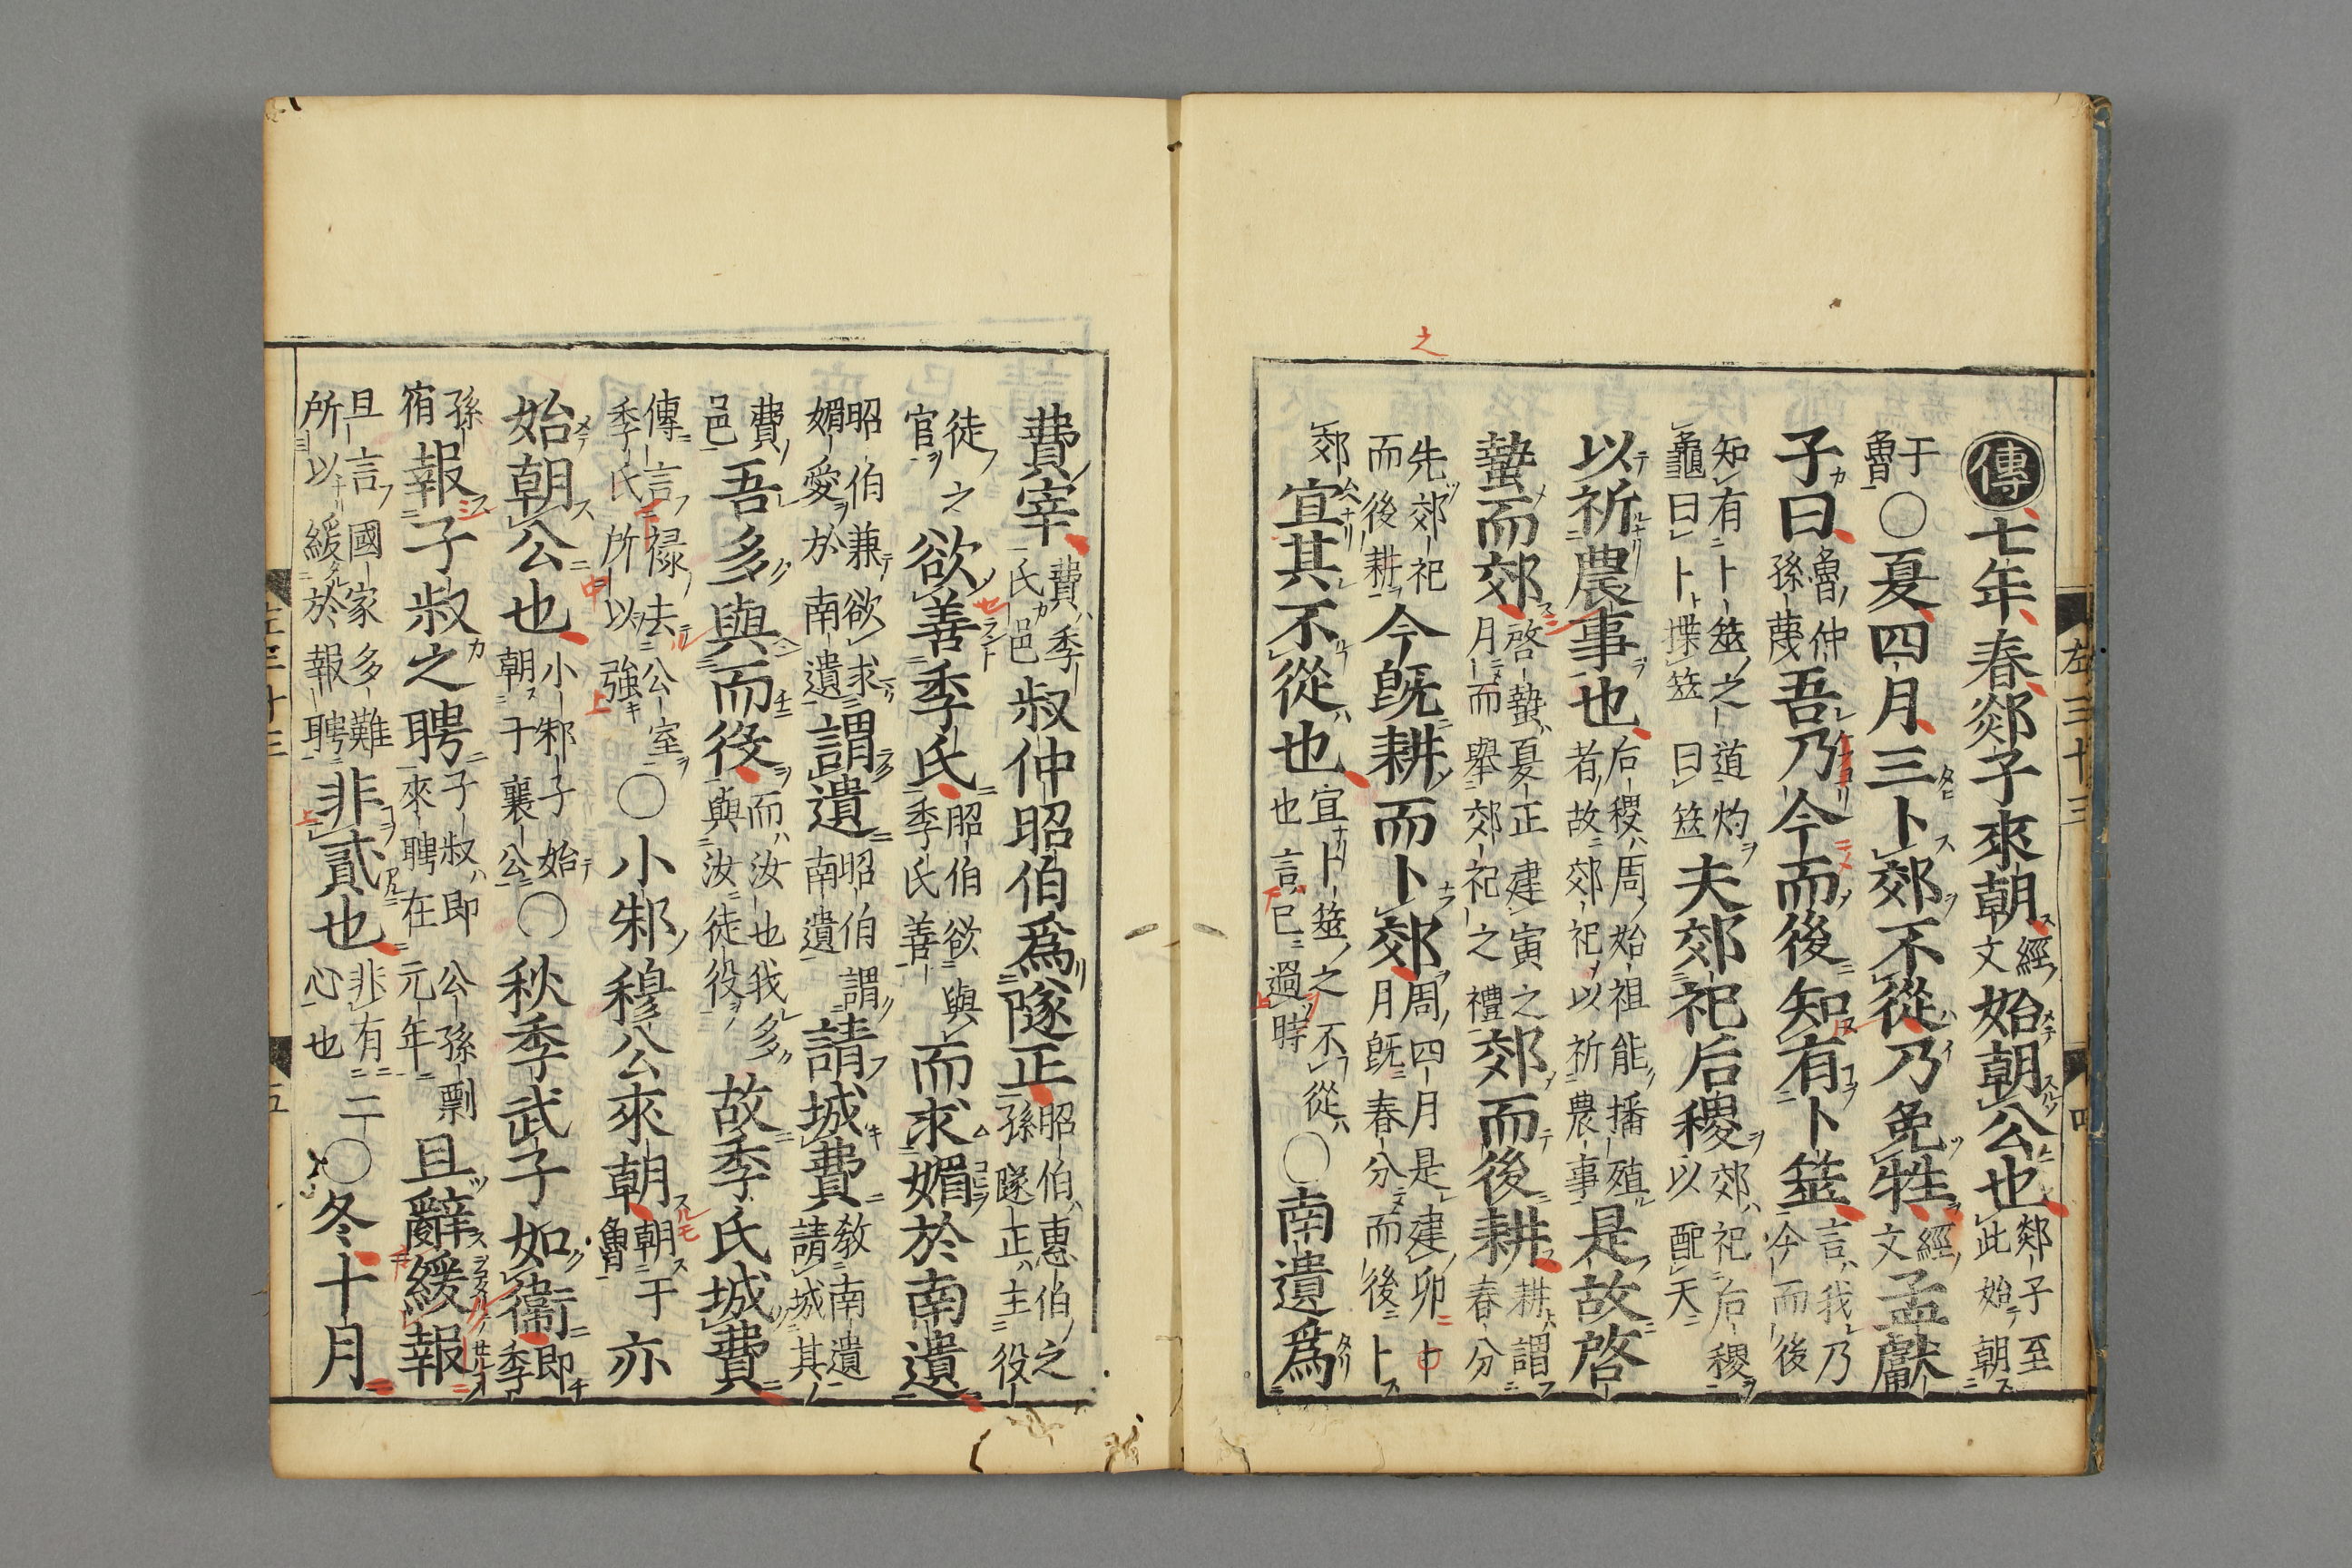 傳七年春郯子來朝經文始朝公也郯子至此始朝
于魯〇夏四月三卜郊不從乃免牲經文孟獻
子曰魯仲孫蔑吾乃今而後知有卜筮言我乃今而後
知有卜筮之道灼龜曰卜揲筮曰筮夫郊祀后稷郊祀后稷以配天
以祈農事也后稷周始祖能播殖者故郊祀以祈農事是故啓
蟄而郊啓蟄夏正建寅之月而舉郊祀之禮郊而後耕耕謂春分
先郊祀而後耕今既耕而卜郊周四月是建卯月既春分而後卜
郊宜其不從也宜卜筮之不從也言已過時〇南遺爲
費宰費季氏邑叔仲昭伯爲隧正昭伯惠伯之孫隧正主役
徒之官欲善季氏昭伯欲與季氏善而求媚於南遺
昭伯兼欲求媚愛於南遺謂遺昭伯謂南遺請城費教南遺請城其
費邑吾多與而役而汝也我多與汝徒役故季氏城費
傳言禄去公室季氏所以強〇小邾穆公來朝朝于魯亦
始朝公也小邾子始朝于襄公〇秋季武子如衞即季
孫宿報子叔之聘子叔即公孫剽來聘在元年且辭緩報
且言國家多難所以緩於報聘非貳也非有二心也〇冬十月
左三十三